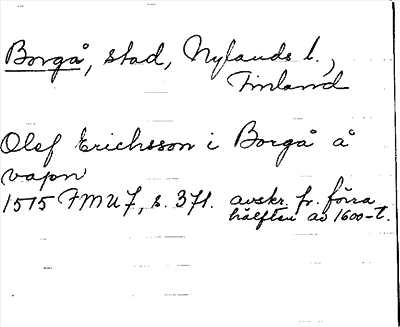 Borgå, stad, Nylands l.,
Finland
Olef Erichsson i Borgå å
vapn
1515 FMU 7, s. 371. avskr. fr. förra
hälften av 1600-t.